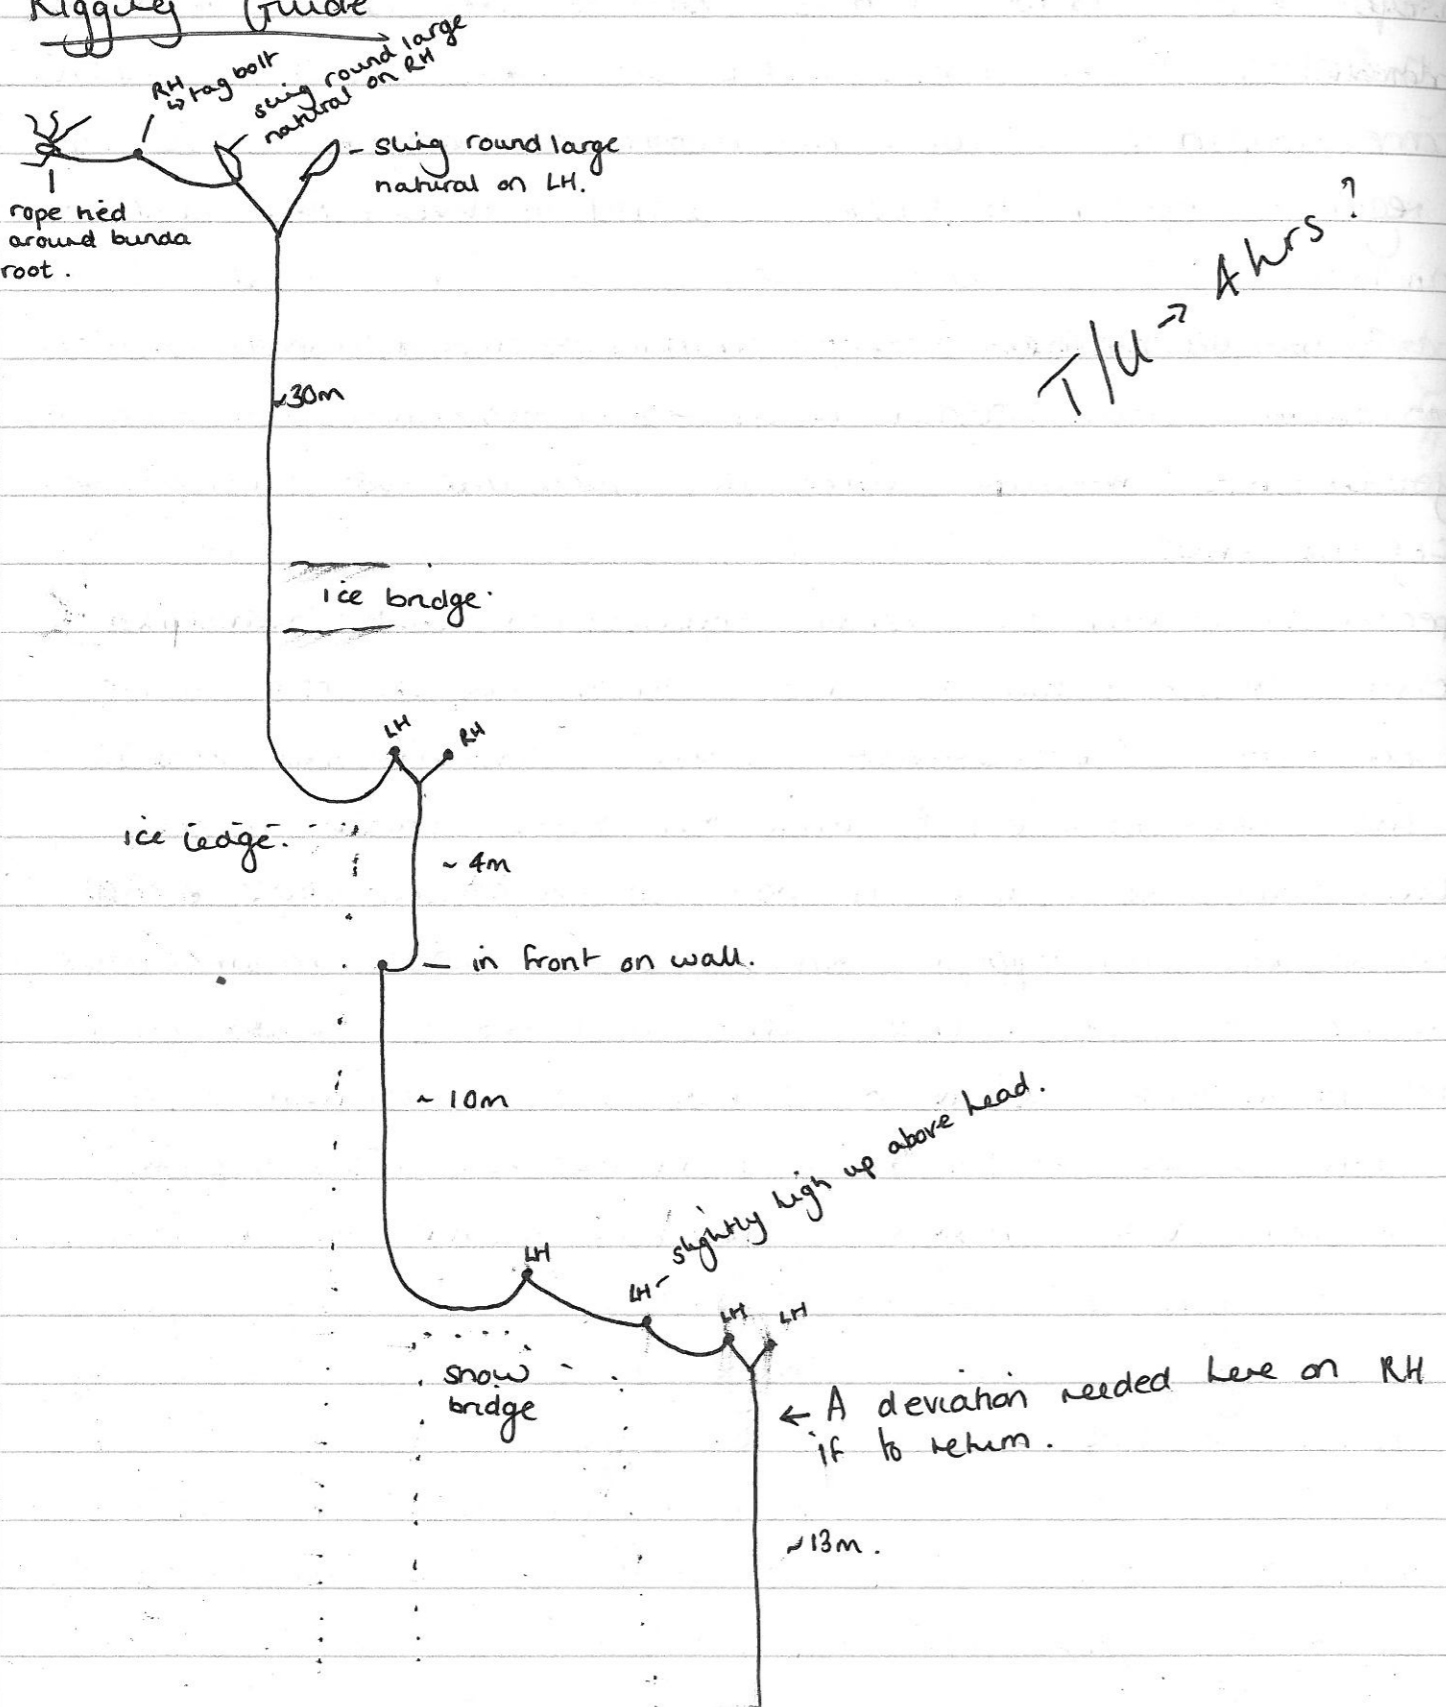 Rigging Guide
RH
↳ tag bolt
sling round large
natural on RH
- sling round large
natural on LH.
rope tied
around bunda
root.
T/U → 4 hrs ?
~30m
ice bridge.
LH
RH
ice ledge.
~ 4m
- in front on wall.
~ 10m
LH
LH - slightly high up above head.
LH
LH
snow
bridge
← A deviation needed here on RH
if to return.
~13m.